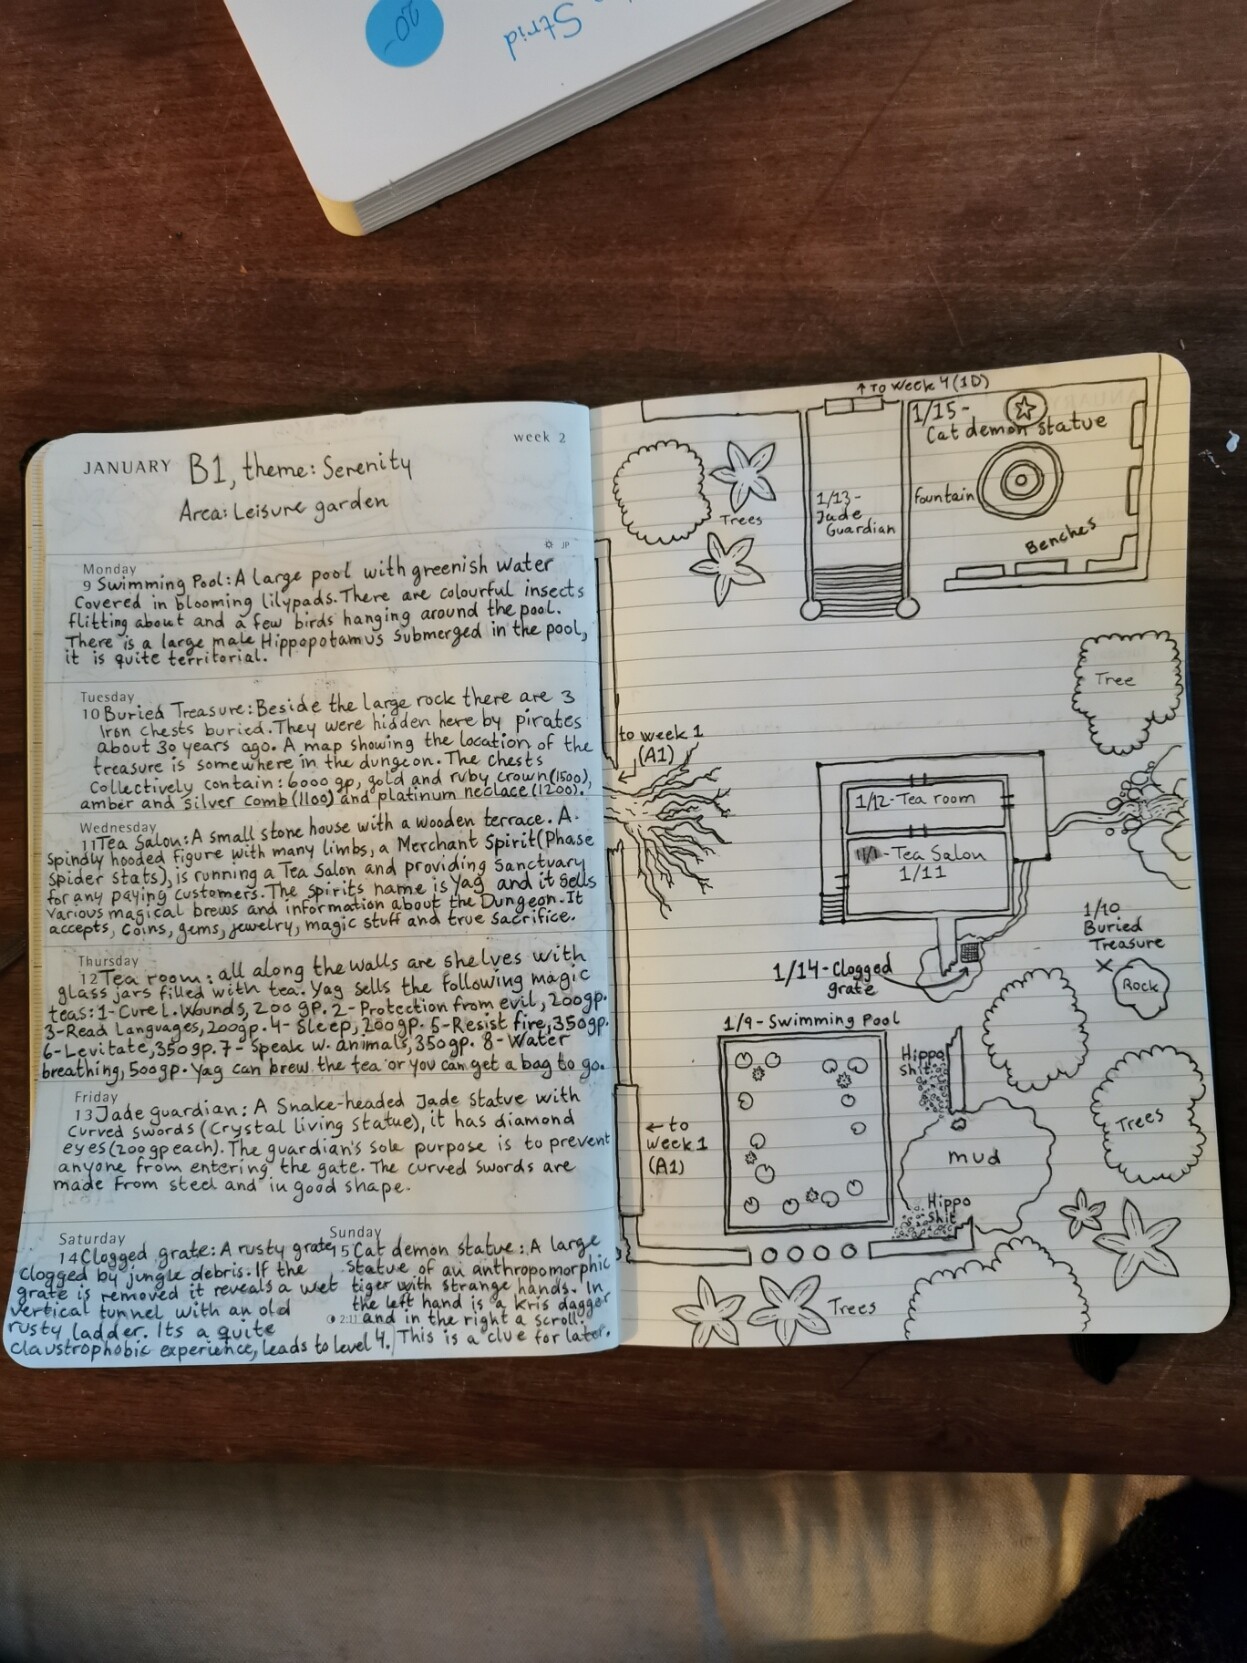 20-
Strid
week 2
JANUARY B1, theme: Serenity
Area: Leisure garden
JP
Monday
9 Swimming Pool: A large pool with greenish water
covered in blooming lilypads. There are colourful insects
flitting about and a few birds hanging around the pool.
There is a large male Hippopotamus submerged in the pool,
it is quite territorial.
Tuesday
10 Buried Treasure: Beside the large rock there are 3
Iron chests buried. They were hidden here by pirates
about 30 years ago. A map showing the location of the
treasure is somewhere in the dungeon. The chests
collectively contain: 6000 gp, gold and ruby crown (1500),
amber and silver comb (1100) and platinum neclace (1200).
Wednesday
11 Tea Salon: A small stone house with a wooden terrace. A
spindly hooded figure with many limbs, a Merchant Spirit (Phase
spider stats), is running a Tea Salon and providing Sanctuary
for any paying customers. The spirits name is Yag and it sells
various magical brews and information about the Dungeon. It
accepts, coins, gems, jewelry, magic stuff and true sacrifice.
Thursday
12 Tea room: all along the walls are shelves with
glass jars filled with tea. Yag sells the following magic
teas: 1- Cure L. Wounds, 200 gp. 2- Protection from evil, 200gp.
3-Read Languages, 200gp. 4- Sleep, 200gp. 5-Resist fire, 350gp.
6-Levitate, 350gp. 7- Speak w. animals, 350gp. 8- Water
breathing, 500gp. Yag can brew the tea or you can get a bag to go.
Friday
13 Jade guardian: A Snake-headed Jade statue with
curved swords (Crystal living statue), it has diamond
eyes (200 gp each). The guardian's sole purpose is to prevent
anyone from entering the gate. The curved swords are
made from steel and in good shape.
Saturday
14 Clogged grate: A rusty grate
clogged by jungle debris. If the
grate is removed it reveals a wet
vertical tunnel with an old
rusty ladder. Its a quite
claustrophobic experience, leads to level 4.
Sunday
15 Cat demon statue: A large
statue of an anthropomorphic
tiger with strange hands. In
the left hand is a Kris dagger
and in the right a scroll.
This is a clue for later.
↑ To Week 4 (1D)
1/15-
Cat demon statue
Trees
1/13-
Jade
Guardian
Fountain
Benches
Tree
to week 1
(A1)
1/12-Tea room
-Tea Salon
1/11
1/10
Buried
Treasure
X
Rock
1/14-Clogged
grate
1/9-Swimming Pool
Hippo
shit
← to
week 1
(A1)
mud
Trees
Hippo
shit
Trees